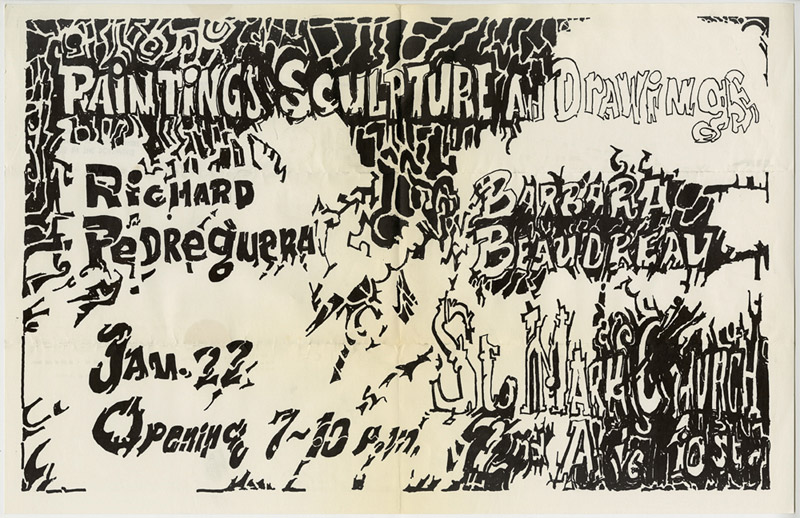 PAINTINGS SCULPTURE AND DRAWINGS
RICHARD
PEDREGUERA
BARBARA
BEAUDREAU
JAN. 22
OPENING 7-10 P.M.
ST. MARK'S CHURCH
2nd AVE 10 St